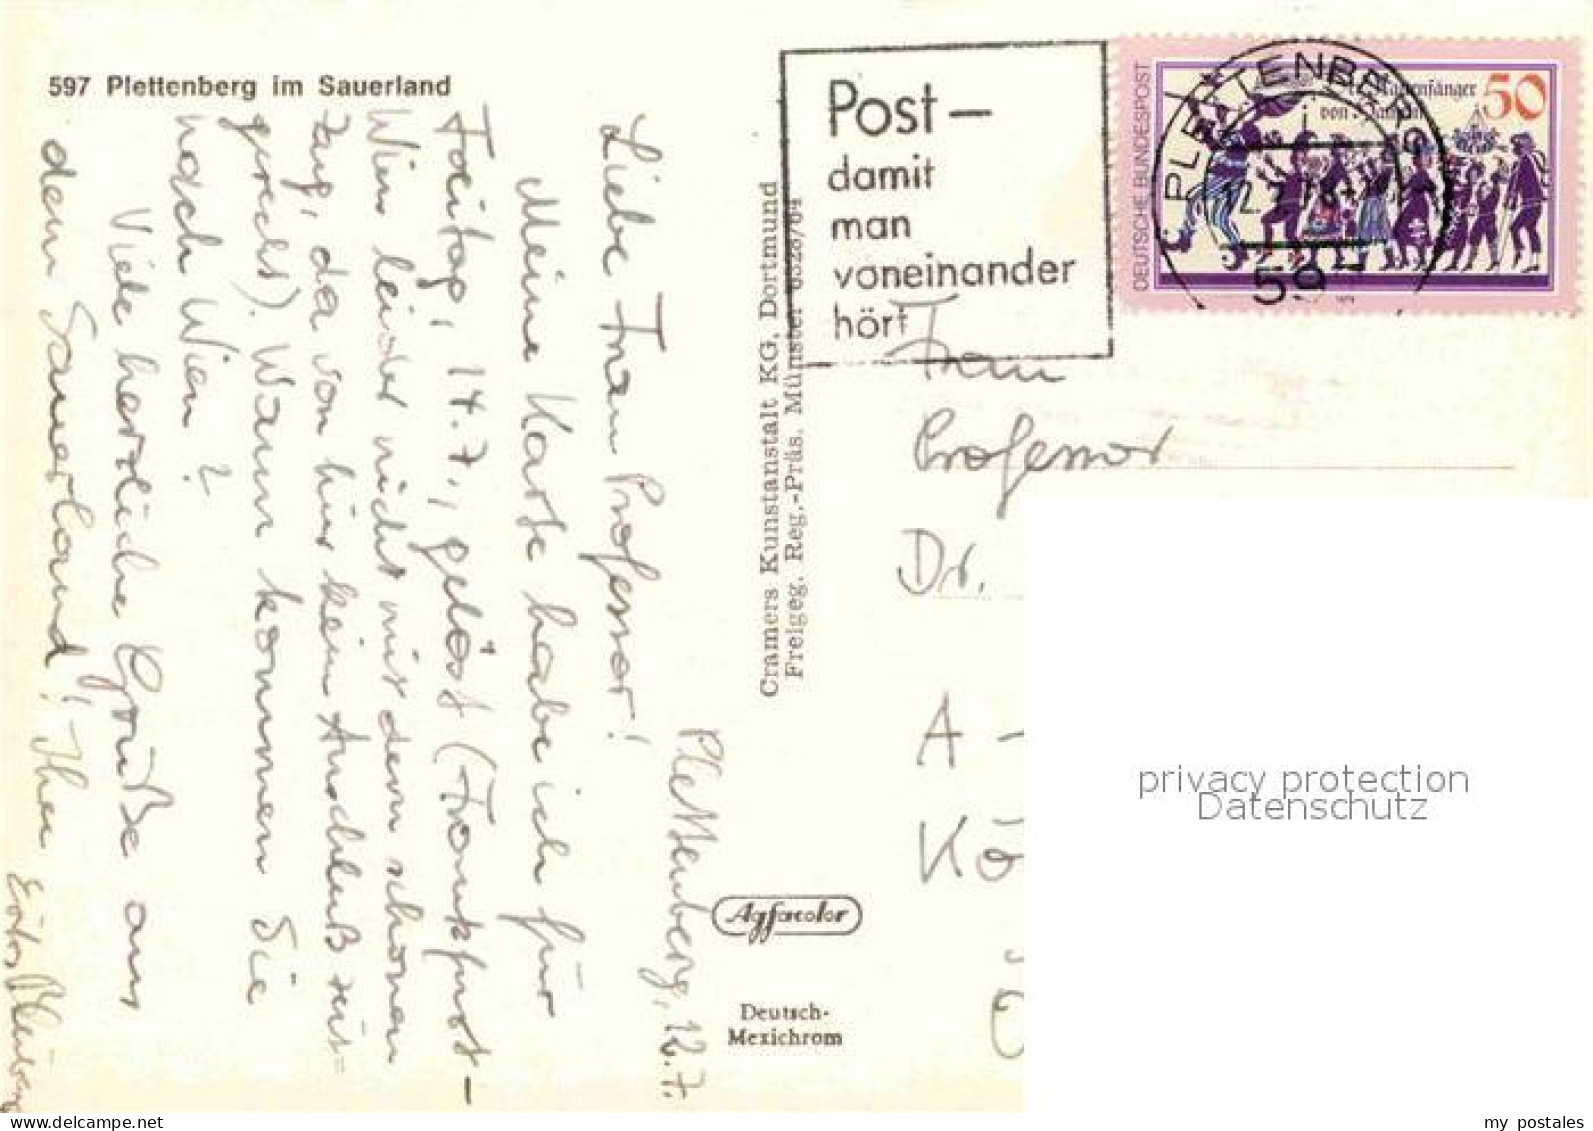 597 Plettenberg im Sauerland
Plettenberg, 12.7.
Liebe Frau Professor!
Meine Karte habe ich für
Freitag, 14.7., gelöst (Frankfurt –
Wien leider nicht mit dem schönen
Zug, da von hier kein Anschluß
gerecht). Wann kommen Sie
nach Wien?
Viele herzliche Grüße aus
dem Sauerland! Ihr
Cramers Kunstanstalt KG, Dortmund
Freigeg. Reg.-Präs. Münster
Agfacolor
Deutsch-
Mexichrom
Post –
damit
man
voneinander
hört
DEUTSCHE BUNDESPOST
Der Rattenfänger
von Hameln
50
PLETTENBERG
597
Frau
Professor
Dr.
A –
Kö
privacy protection
Datenschutz
my postales